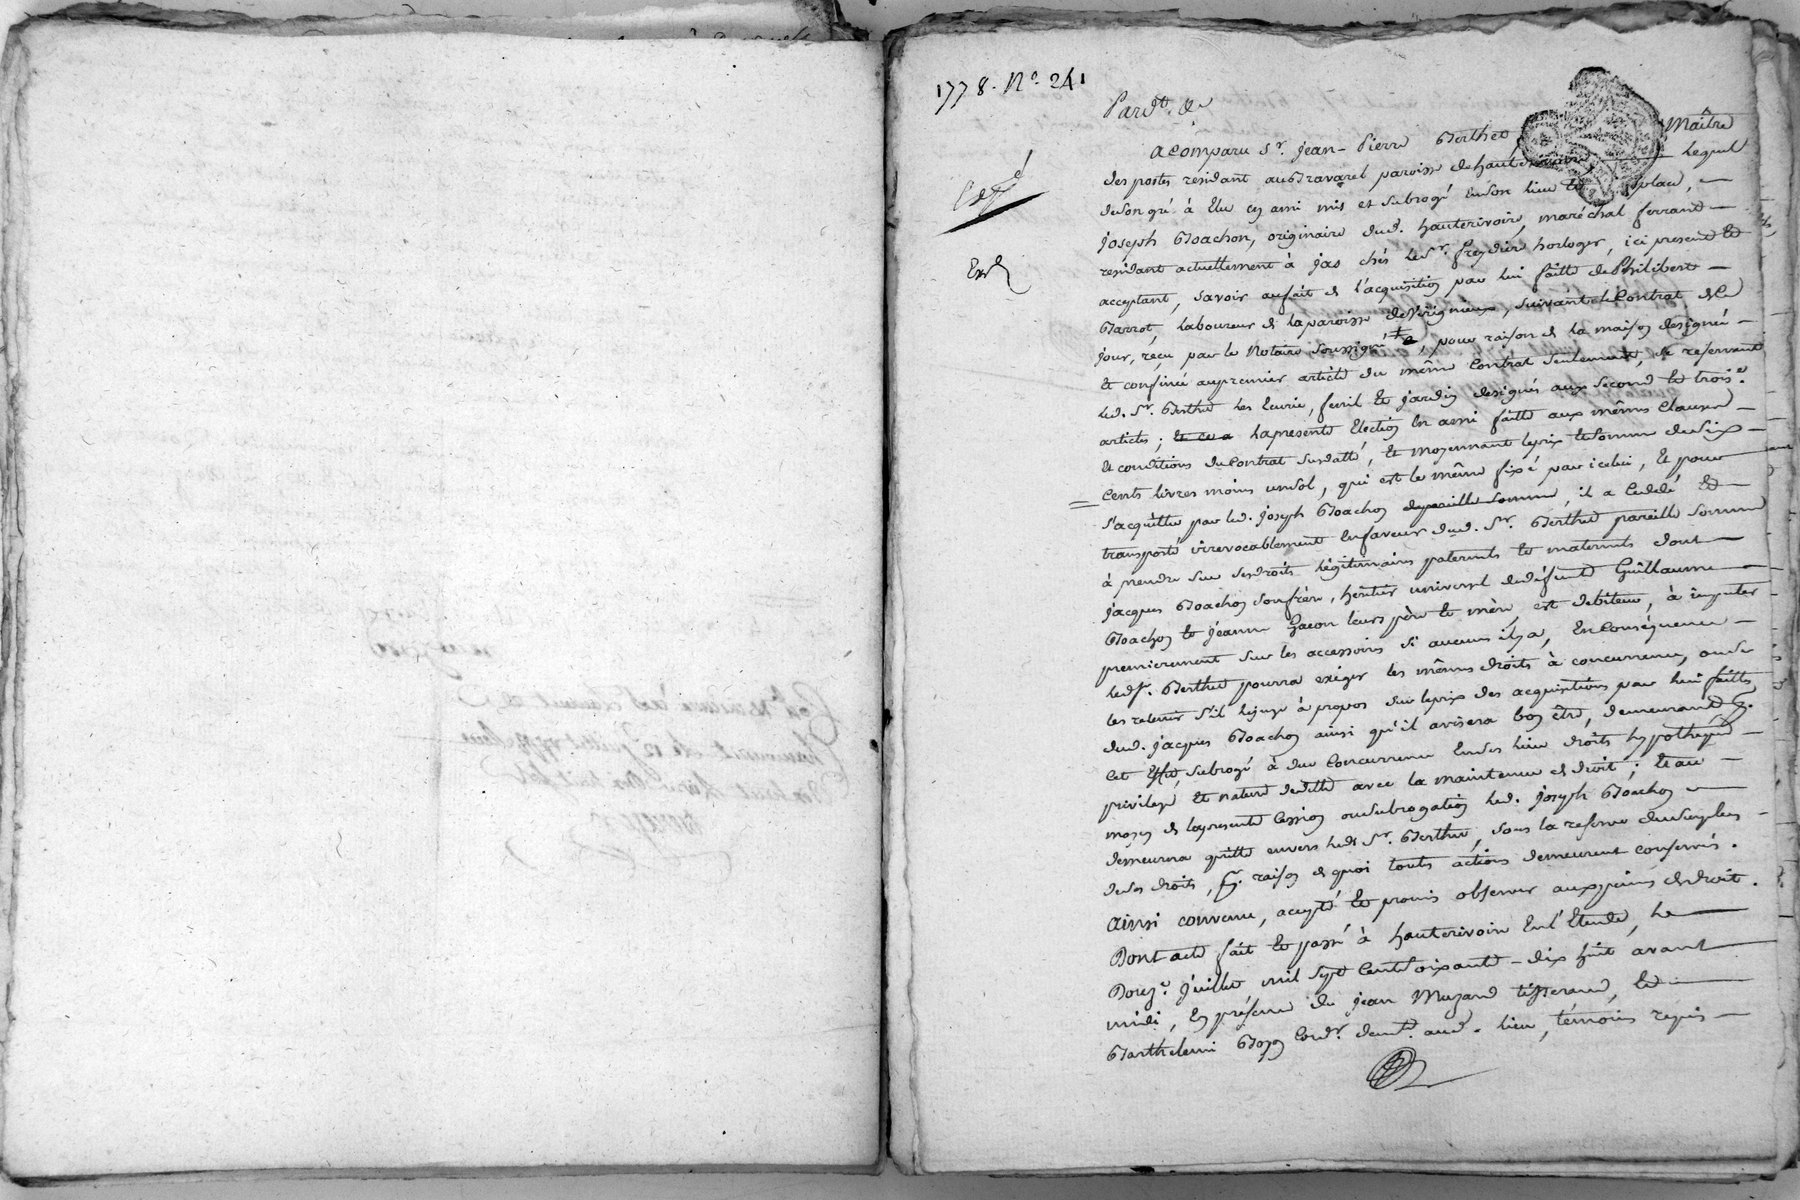 1778. N.° 241
Pard.t &c
a comparu S.r jean-Pierre Berthet Maître
des postes résidant au Bravarel paroisse de hauterivoire, lequel
de son gré à élu en ami mis et subrogé en son lieu et place,
joseph Boachon, originaire dud. hauterivoire, maréchal ferrant
residant actuellement à jas chés le S.r freydiere horloger, ici present et
acceptant, savoir au fait de l'acquisition par lui faitte de Philibert
Barrot, laboureur de la paroisse de Virigneux, suivant le Contrat de ce
jour, reçu par le Notaire soussigné, pour raison de la maison designée
et confinée au premier article du même Contrat seulement, se reservant
led. S.r Berthet les Ecurie, fenil et jardin designés aux second et trois.e
articles; et ce a la presente Election en ami faitte aux mêmes clauses
et conditions du Contrat susdatté, et moyennant le prix et somme de six
cents livres moins un sol, qui est le même fixé par icelui, et pour
s'acquitter par led. joseph Boachon de pareille somme, il a cedé et
transporté irrevocablement en faveur dud. S.r Berthet pareille somme
à prendre sur ses droits légitimaires paternels et maternels dont
jacques Boachon son frère, héritier universel de défunts Guillaume
Boachon et jeanne Gacon leurs père et mère, est debiteur, à imputer
premierement sur les accessoires si aucuns il y a, En Conséquence
led. S.r Berthet pourra exiger les mêmes droits à concurrence, ou se
les retenir s'il le juge à propos sur le prix des acquisitions par lui faittes
dud. jacques Boachon ainsi qu'il avisera bon être, demeurant p.r
cet effet subrogé à due concurrence en ses lieu droits hypothèque
privilege et nature de dette avec la maintenue de droit; et au
moyen de la presente Cession ou subrogation led. joseph Boachon
demeurera quitte envers led. S.r Berthet, sous la reserve du surplus
de ses droits, p.r raison de quoi touts actions demeurent conservés.
Ainsi convenu, accepté et promis observer aux peines de droit.
Dont acte fait et passé à hauterivoire En l'Etude, le
Douz.e juillet mil sept Cent soixante-dix huit avant
midi, En présence de jean Muzard tisserand, et
Barthelemi Boyer Cord.r demt. aud. lieu, témoins requis